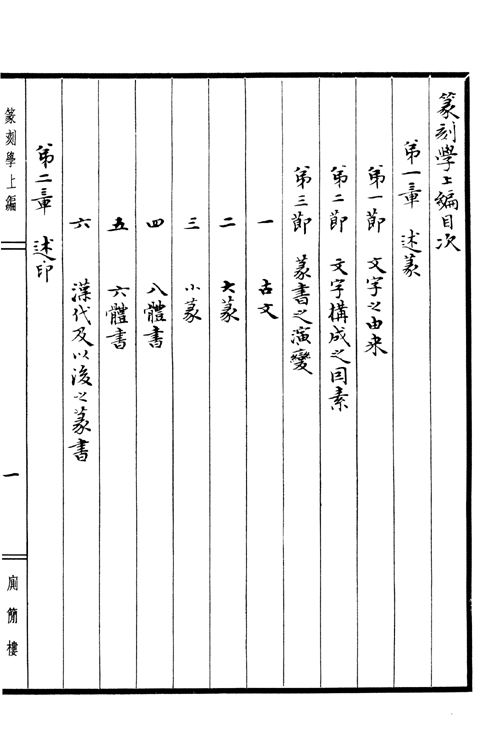 篆刻學上編目次
第一章　述篆
第一節　文字之由来
第二節　文字構成之因素
第三節　篆書之演變
一　古文
二　大篆
三　小篆
四　八體書
五　六體書
六　漢代及以後之篆書
第二章　述印
篆刻學上編
一
廁簡樓